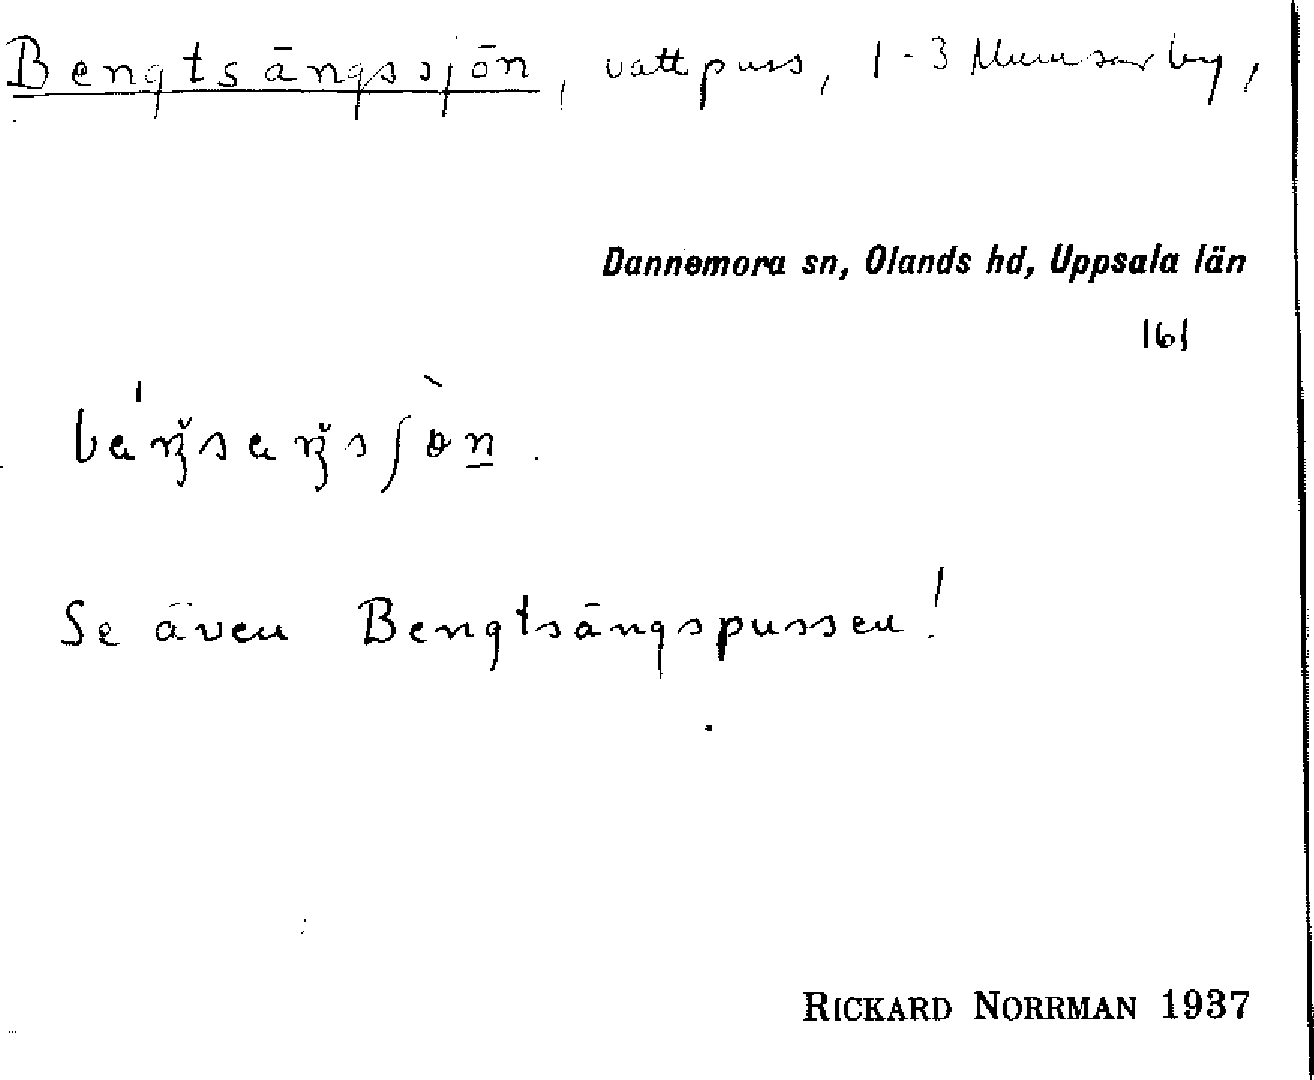 Bengtsängssjön, vattpuss, 1-3 Mumsarby,
Dannemora sn, Olands hd, Uppsala län
161
Se även Bengtsängspussen!
RICKARD NORRMAN 1937